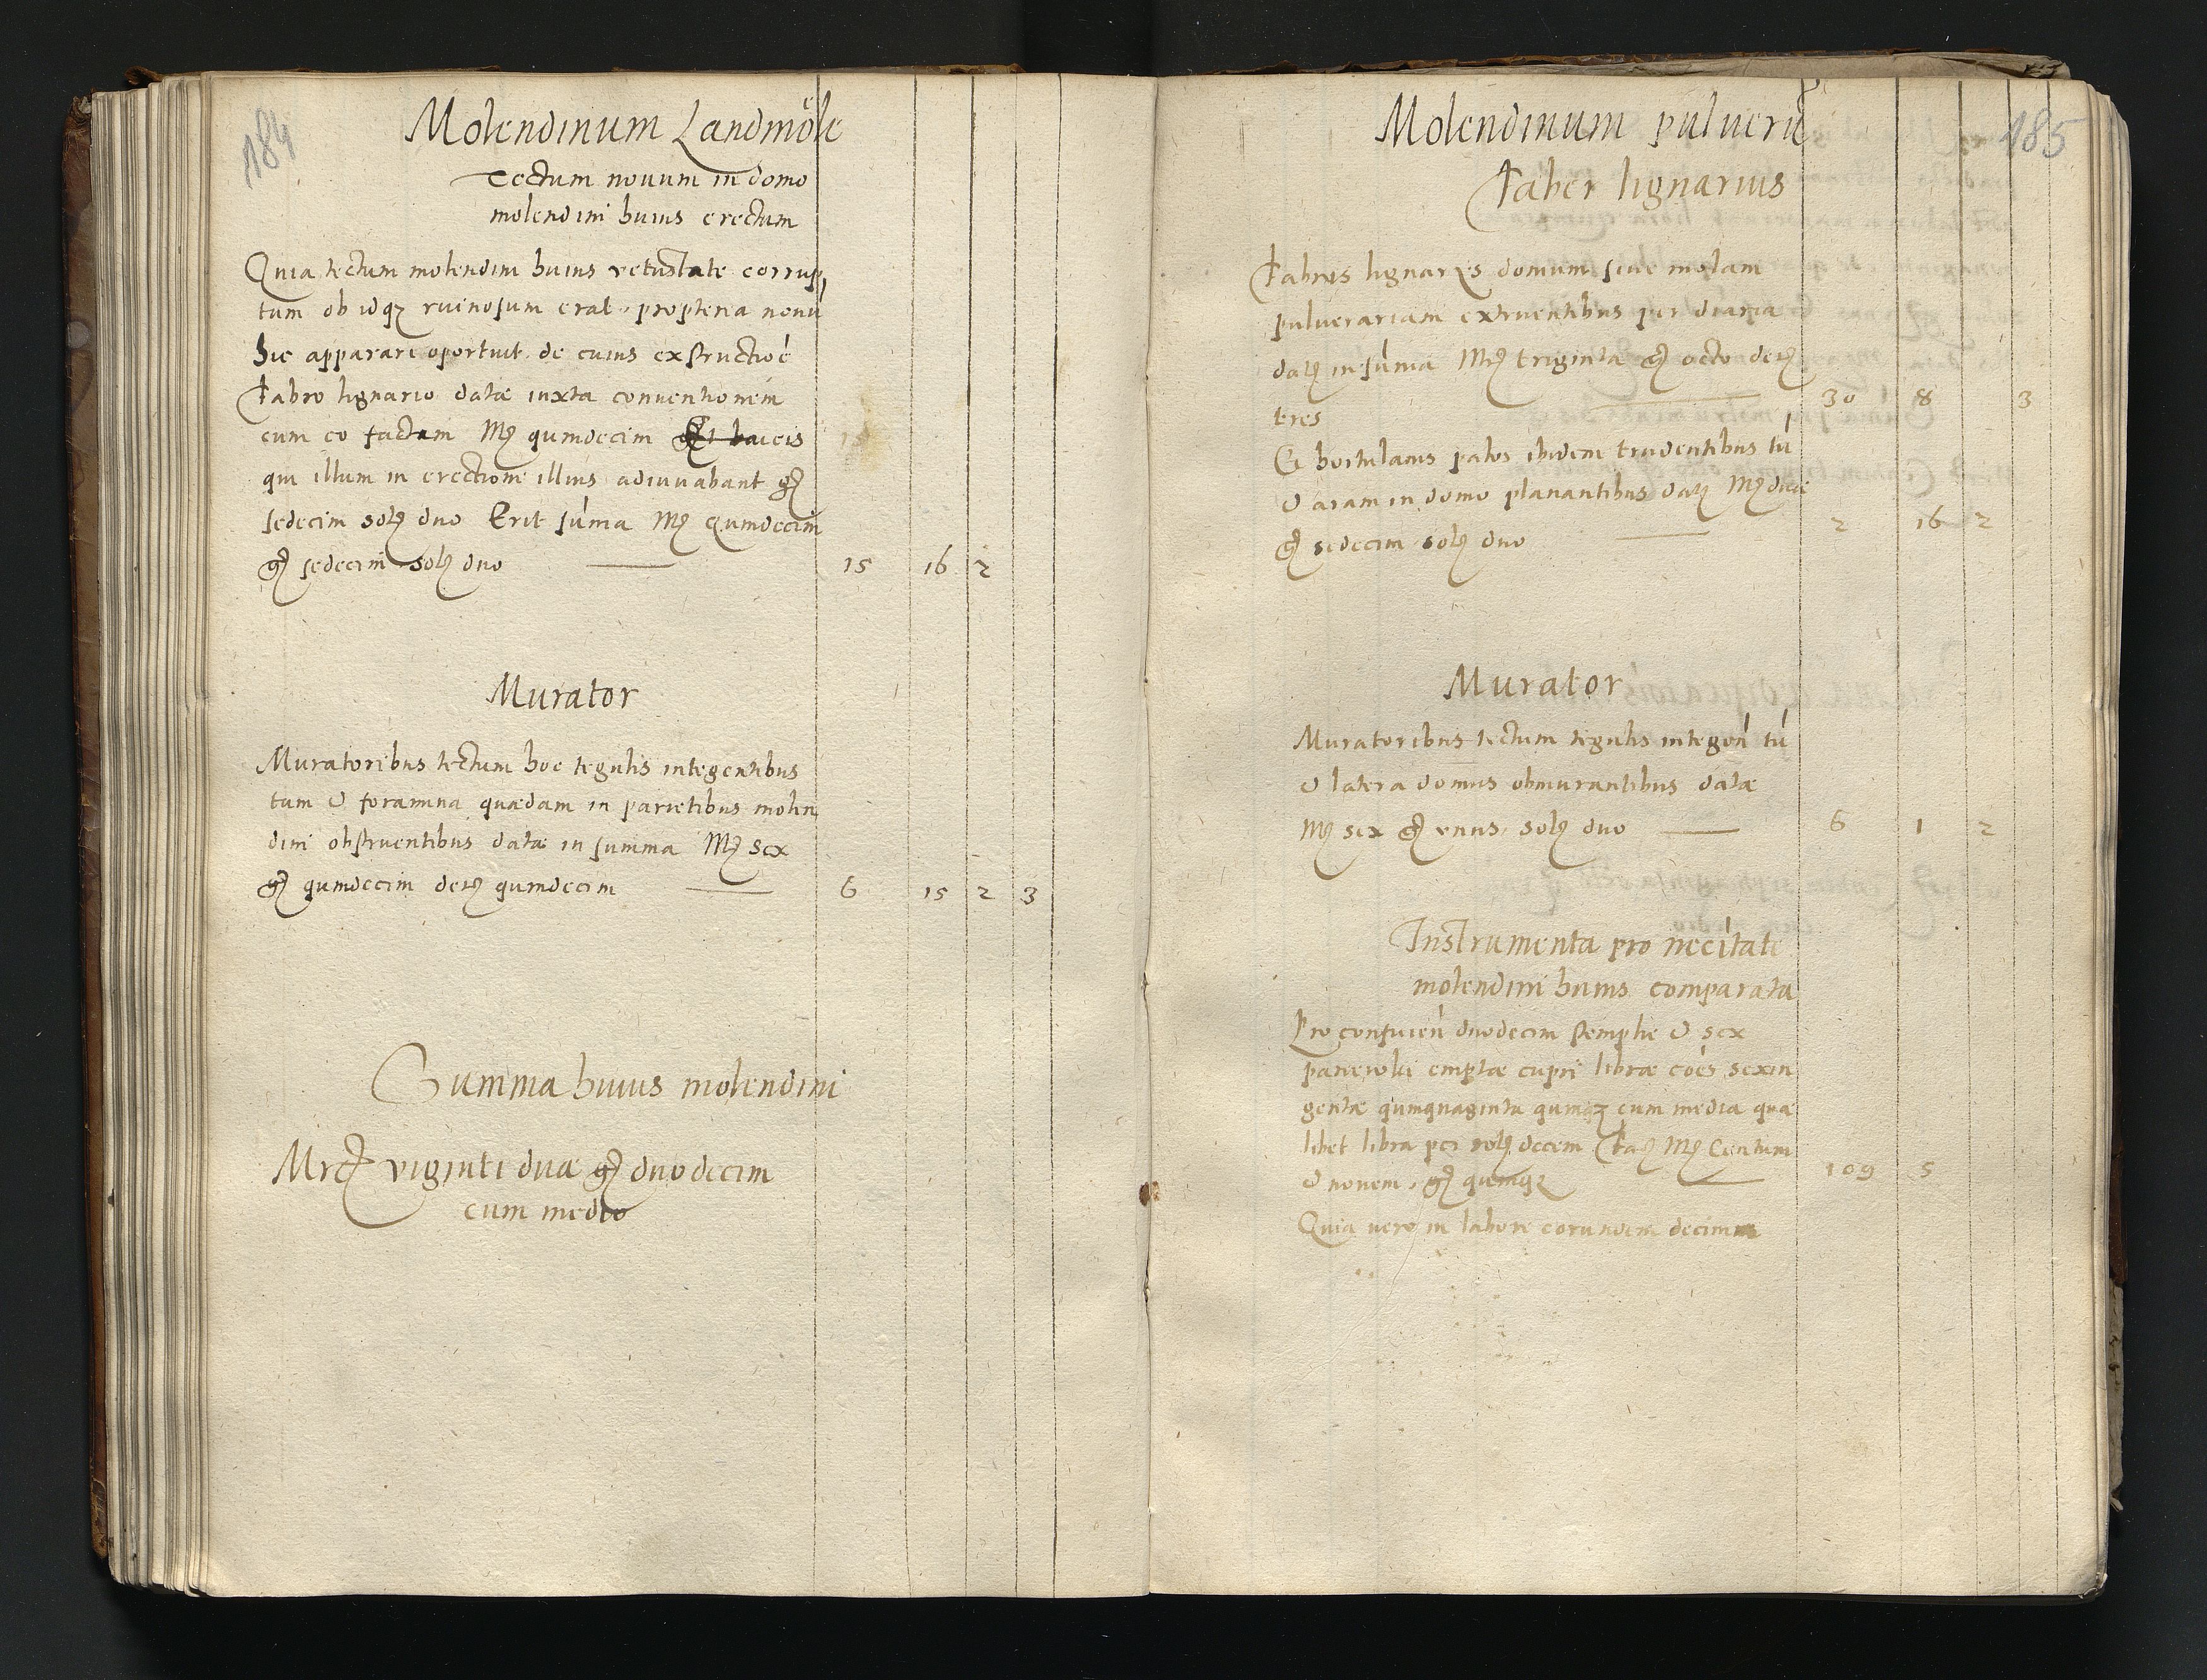 184
Molendinum Landmöle
Tectum nouum in domo
molendini huius erectum
Quia tectum molendini huius vetustate corrup,
tum ob idqꝫ ruinosum erat, propterea nouū
hic apparari oportuit. de cuius exstructiōe
Fabro lignario datae iuxta conuentionem
cum eo factam Mꝛ quindecim
qui illum in erectione illius adiuuabant gꝛ
sedecim solꝛ duo Erit sūma Mꝛ quindecim
gꝛ sedecim solꝛ duo 15 16 2
Murator
Muratoribus tectum hoc tegulis integentibus
tum & foramina quaedam in parietibus molen,
dini obstruentibus datae in summa Mꝛ sex
gꝛ quindecim denꝛ quindecim 6 15 2 3
Summa huius molendini
Mrcꝛ viginti duae gꝛ duodecim
cum medio
185
Molendinum pulueru
Faber lignarius
Fabris lignariis domum siue molam
puluerariam extruentibus per diaria
datꝛ in sūma Mrꝛ triginta gꝛ octo denꝛ
tres 30 8 3
Et hortulanis palos ibidem trudentibus tū
& aram in domo planantibus datꝛ Mꝛ duae
gꝛ sedecim solꝛ duo 2 16 2
Murator
Muratoribus tectum tegulis integēn tū
& latera domus obmurantibus datae
Mꝛ sex gꝛ vnus, solꝛ duo 6 1 2
Instrumenta pro necītate
molendini huius comparata
Pro conficiēn duodecim stemphe & sex
panewki emptae cupri librae cōes sexin
gentae quinquaginta quinqꝫ cum media quae
libet libra per solꝛ decem Facꝛ Mꝛ Centum
& nouem, gꝛ quinqꝫ 109 5
Quia vero in labore eorundem decima